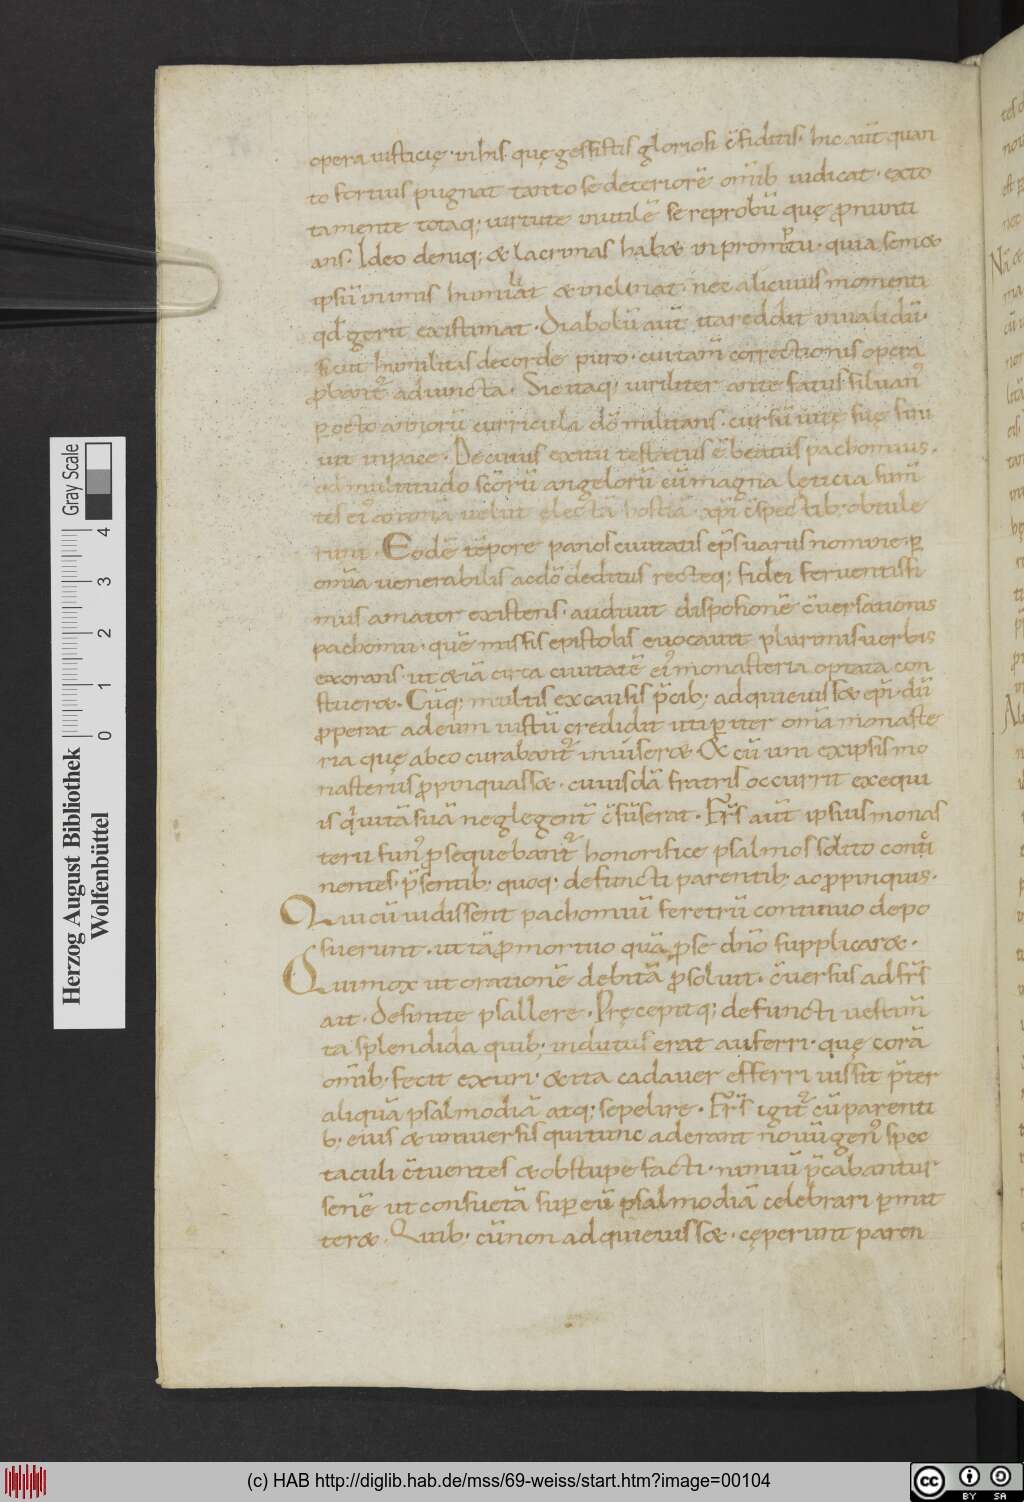 opera iusticię. inhis. quę gessistis gloriosi c̄fiditis. hic aūt quan
to fortius pugnat tanto se deteriorē om̄ib iudicat. exto
tamente totaq; uirtute inutilē se reprobū quę pronunti
ans. Ideo deniq; & lacrimas hab& inpromptu. quia sem&
ipsū inimis humiliat & inclinat. nec alicuius momenti
qđ gerit existimat. Diabolū aūt ita reddit inualidū.
sicut humilitas decorde puro. cui tam̄ correctionis opera
ꝓbant̄ adiuncta. Sic itaq; uiriliter ante fatus siluan᾿
ꝑ octo annorū curricula dō militans. cursū uitę suę fini
uit inpace. De cuius exitu testatus ē beatus pachomius.
qđ multitudo sc̄orū angelorū cū magna lęticia sum̄
tes ei᾿ animā uelut electā hostiā. xp̄i c̄spectib; obtule
runt. Eodē tēpore panos ciuitatis ep̄s uarus nomine. ꝑ
om̄ia uenerabilis ac dō deditus recteq; fidei feruentissi
mus amator existens. audiuit disposionē c̄uersationis
pachomii. quē missis epistolis euocauit plurimis uerbis
exorans. ut & iā circa ciuitatē ei᾿ monasteria optata con
stuer&. Cūq; multis ex causis p̄cib; adquieuiss& ep̄i. dū
ꝓperat ad eum iustū credidit uti ꝑ iter om̄ia monaste
ria quę ab eo curabant̄ inuiser&. & cū uni ex ipsis mo
nasteriis ꝓpinquass&. cuiusdā fratris occurrit exequi
is qui uitā suā neglegent̄ c̄sūserat. Fr̄s aūt ipsius monas
terii fun᾿ ꝓsequebant̄ honorifice psalmos solito conti
nentes. p̄sentib; quoq; defuncti parentib; ac ꝓpinquis.
Qui cū uidissent pachomiū feretrū continuo depo
suerunt. ut tā ꝓ mortuo quā ꝓ se dn̄o supplicar&.
Qui mox ut orationē debitā ꝓsoluit. c̄uersus ad fr̄s
ait. Desinite psallere. Pręcepitq; defuncti uestim̄
ta splendida quib; indutus erat auferri. quę corā
om̄ib; fecit exuri. & ita cadauer efferri iussit p̄ter
aliquā psalmodiā atq; sepelire. Fr̄s igit̄ cū parenti
b; eius & uniuersis qui tunc aderant nouū gen᾿ spec
taculi c̄tuentes & obstupefacti. nimiū p̄cabantur
senē ut consuetā super eū psalmodiā celebrari ꝑmit
ter&. Quib; cū non adquieuiss&. cęperunt paren
Herzog August Bibliothek
Wolfenbüttel
Gray Scale
0 1 2 3 4
(c) HAB http://diglib.hab.de/mss/69-weiss/start.htm?image=00104
cc BY SA